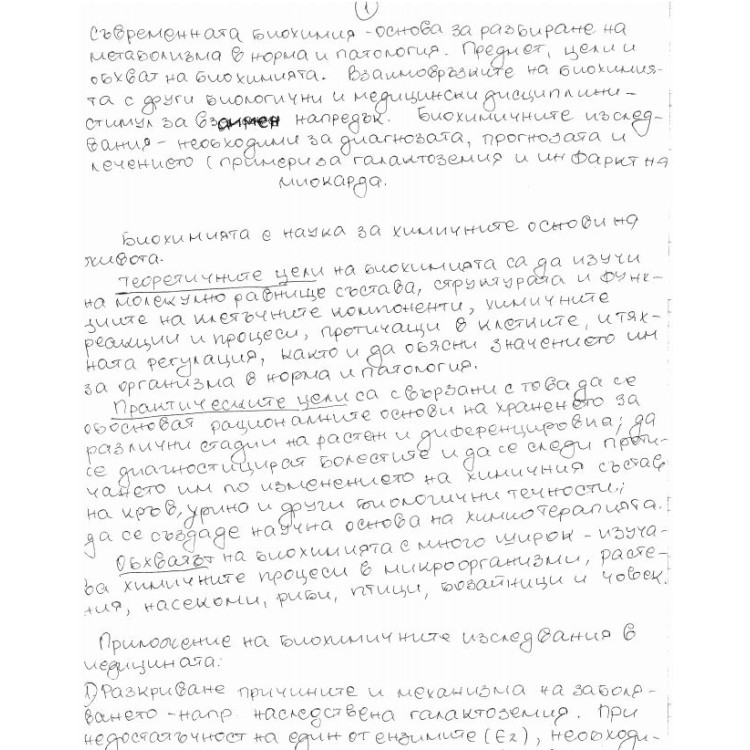 1
Съвременната биохимия - основа за разбиране на
метаболизма в норма и патология. Предмет, цели и
обхват на биохимията. Взаимовръзките на биохимия-
та с други биологични и медицински дисциплини -
стимул за взаимен напредък. Биохимичните изслед-
вания - необходими за диагнозата, прогнозата и
лечението (примери за галактоземия и инфаркт на
миокарда.
Биохимията е наука за химичните основи на
живота.
Теоретичните цели на биохимията са да изучи
на молекулно равнище състава, структурата и функ-
циите на клетъчните компоненти, химичните
реакции и процеси, протичащи в клетките, и тях-
ната регулация, както и да обясни значението им
за организма в норма и патология.
Практическите цели са свързани с това да се
обосноват рационалните основи на храненето за
различни стадии на растеж и диференцировка; да
се диагностицират болестите и да се следи проти-
чането им по изменението на химичния състав
на кръв, урина и други биологични течности;
да се създаде научна основа на химиотерапията.
Обхватът на биохимията е много широк - изуча-
ва химичните процеси в микроорганизми, расте-
ния, насекоми, риби, птици, бозайници и човек.
Приложение на биохимичните изследвания в
медицината:
1) Разкриване причините и механизма на заболя-
ването - напр. наследствена галактоземия. При
недостатъчност на един от ензимите (E2), необходи-